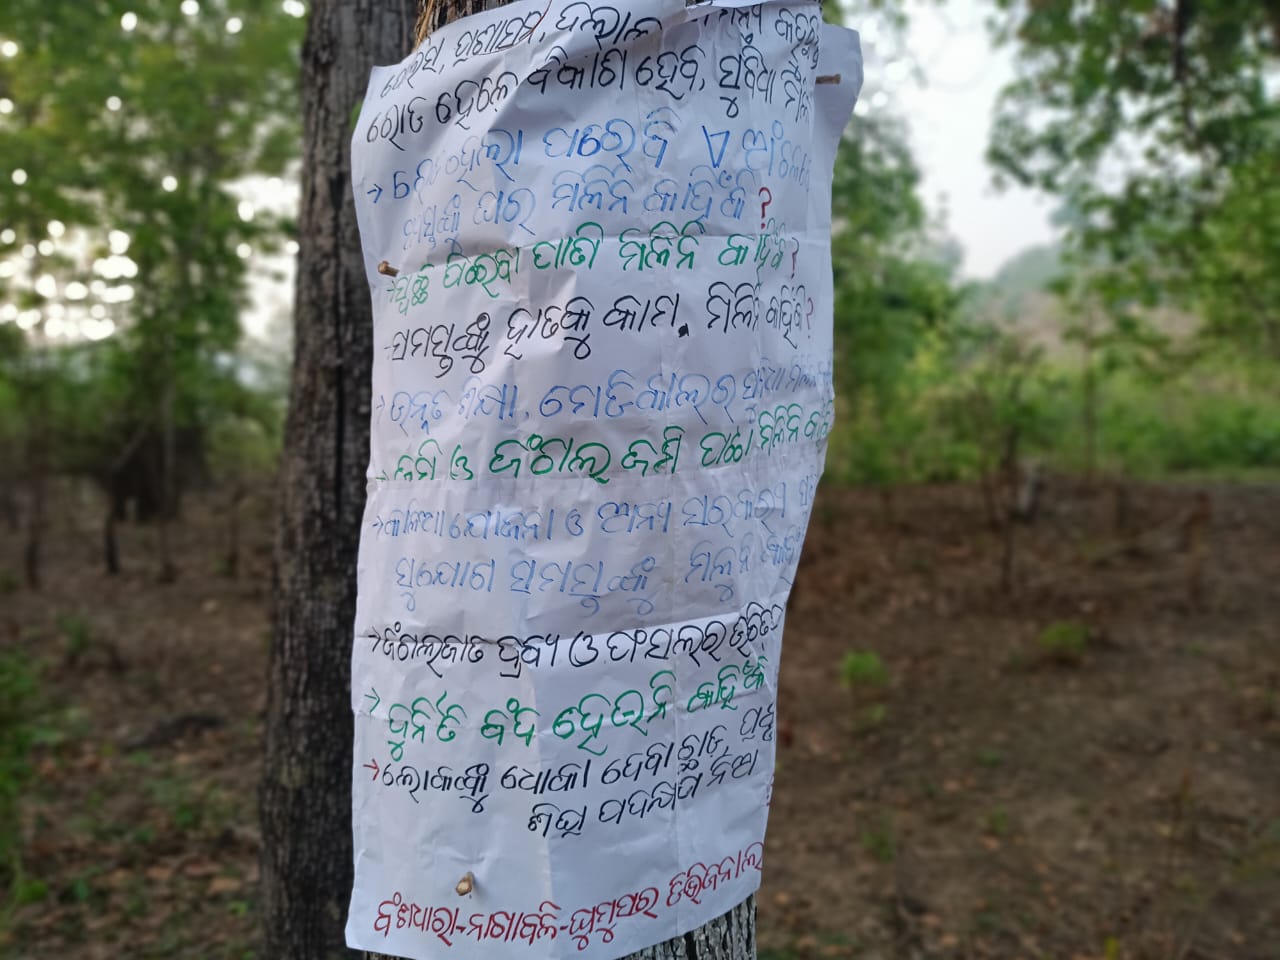 ପୋଲିସ, ପ୍ରଶାସନ, ଦଲାଲ
ରୋଡ ହେଲେ ବିକାଶ ହେବ, ସୁବିଧା
→ ପରେ ବି ଏ
ଘର ମିଳିନି କାହିଁକି ?
→ ସ୍ବଚ୍ଛ ପିଇବା ପାଣି ମିଳିନି କାହିଁକି ?
-ସମସ୍ତଙ୍କୁ ହାତକୁ କାମ, ମିଳିନି କାହିଁକି ?
→ ଉନ୍ନତ ଶିକ୍ଷା, ମେଡିକାଲର ସୁବିଧା
→ ଜମି ଓ ଜଂଗଲ ଜମି ପଟ୍ଟା ମିଳିନି
→ କାଳିଆ ଯୋଜନା ଓ ଅନ୍ୟ ସରକାରୀ
ସୁଯୋଗ ସମସ୍ତଙ୍କୁ ମିଳୁନି କାହିଁକି
→ ଜଂଗଲଜାତ ଦ୍ରବ୍ୟ ଓ ଫସଲର ଉଚିତ
→ ଦୁର୍ନିତି ବଂଦ ହେଉନି କାହିଁକି
→ ଲୋକଙ୍କୁ ଧୋକା ଦେବା ଛାଡ,
ଶିଘ୍ର ପଦକ୍ଷେପ ନିଅ
ବଂଶଧାରା-ନାଗାବଳି-ଘୁମୁସର ଡିଭିଜନାଲ